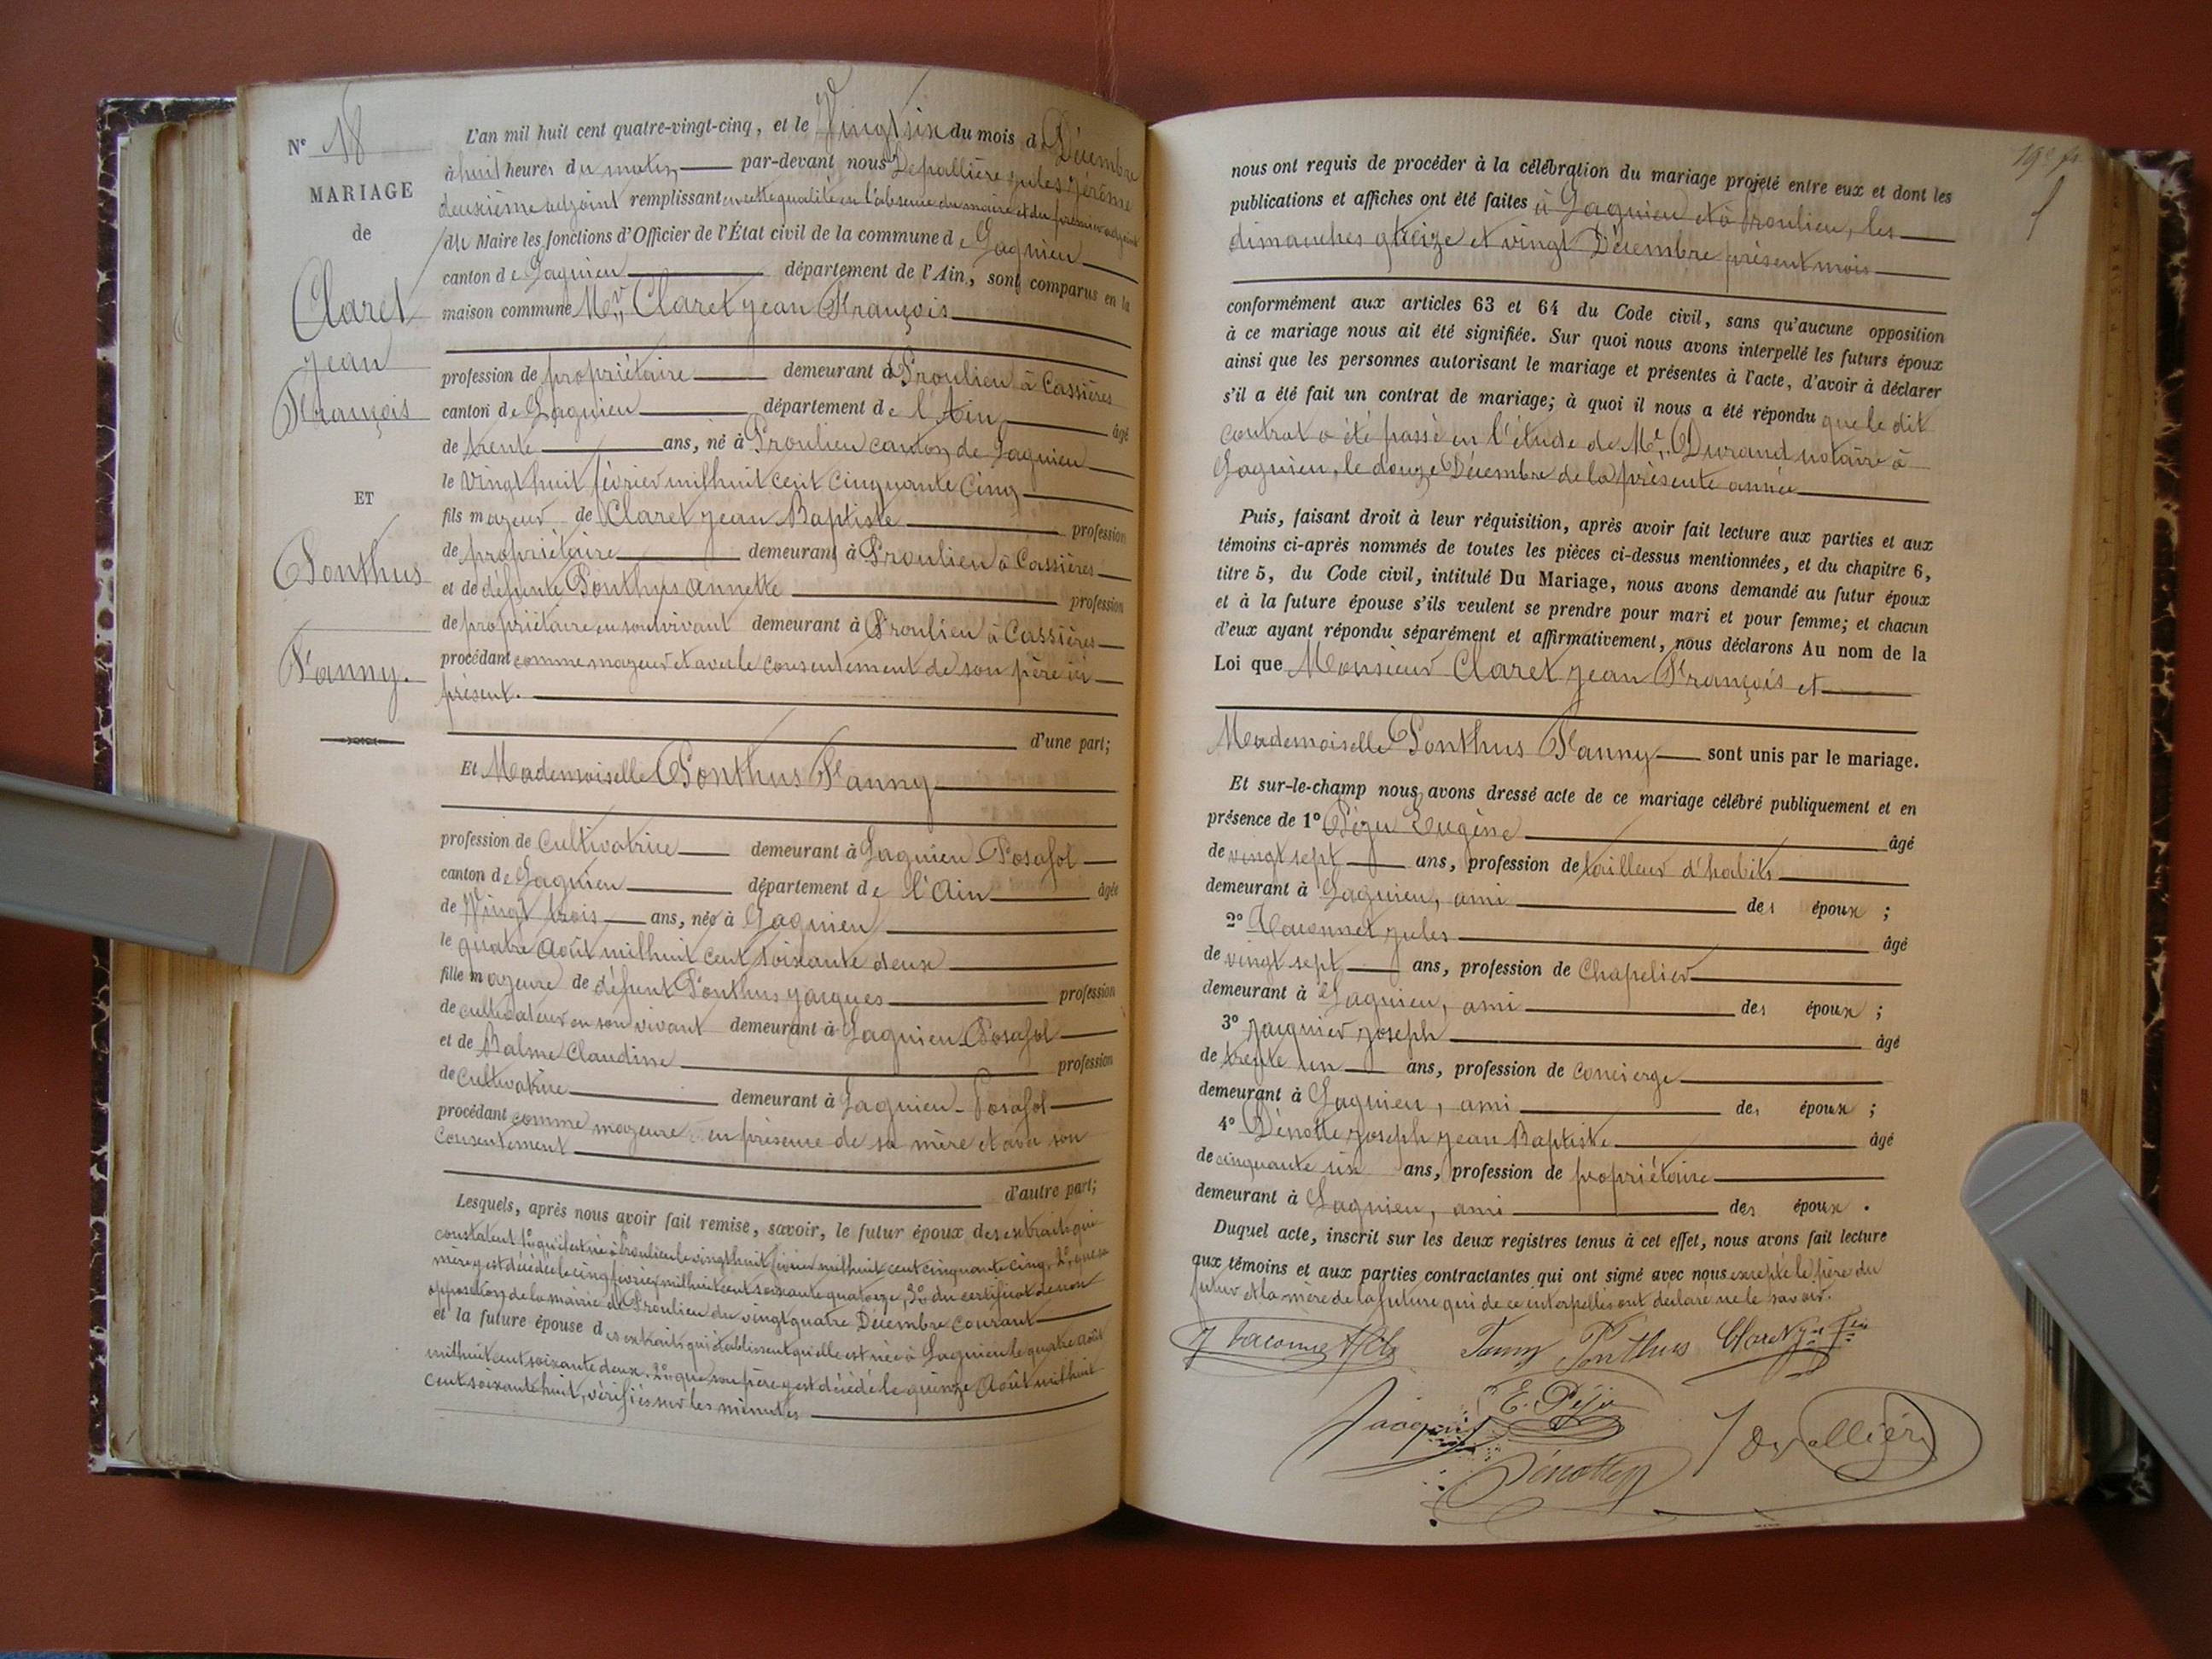 N° 18
MARIAGE
de
Claret
Jean
François
ET
Ponthus
Fanny.
L'an mil huit cent quatre-vingt-cinq, et le Vingt six du mois de Décembre
à huit heures du matin par-devant nous Depallière Jules Jérôme
deuxième adjoint remplissant en cette qualité en l'absence du maire et du premier adjoint
du Maire les fonctions d'Officier de l'État civil de la commune de Lagnieu
canton de Lagnieu département de l'Ain, sont comparus en la
maison commune Mr. Claret Jean François
profession de propriétaire demeurant à Proulieu à Cassières
canton de Lagnieu département de l'Ain âgé
de trente ans, né à Proulieu canton de Lagnieu
le vingt huit février mil huit cent cinquante cinq
fils majeur de Claret Jean Baptiste profession
de propriétaire demeurant à Proulieu à Cassières
et de défunte Ponthus Annette profession
de propriétaire en son vivant demeurant à Proulieu à Cassières
procédant comme majeur et avec le consentement de son père ici
présent.
d'une part;
Et Mademoiselle Ponthus Fanny
profession de cultivatrice demeurant à Lagnieu Posafol
canton de Lagnieu département de l'Ain âgée
de Vingt trois ans, née à Lagnieu
le quatre Août mil huit cent soixante deux
fille majeure de défunt Ponthus Jacques profession
de cultivateur en son vivant demeurant à Lagnieu Posafol
et de Balme Claudine profession
de cultivatrice demeurant à Lagnieu Posafol
procédant comme majeure en présence de sa mère et avec son
consentement
d'autre part;
Lesquels, après nous avoir fait remise, savoir, le futur époux des extraits qui
constatent 1° qu'il est né à Proulieu le vingt huit février mil huit cent cinquante cinq, 2° que sa
mère y est décédée le cinq février mil huit cent soixante quatorze, 3° du certificat de non
opposition de la mairie de Proulieu du vingt quatre Décembre courant
et la future épouse des extraits qui établissent qu'elle est née à Lagnieu le quatre août
mil huit cent soixante deux. 2° que son père y est décédé le quinze Août mil huit
cent soixante huit, vérifiés sur les minutes
nous ont requis de procéder à la célébration du mariage projeté entre eux et dont les
publications et affiches ont été faites à Lagnieu et à Proulieu, les
dimanches treize et vingt Décembre présent mois
conformément aux articles 63 et 64 du Code civil, sans qu'aucune opposition
à ce mariage nous ait été signifiée. Sur quoi nous avons interpellé les futurs époux
ainsi que les personnes autorisant le mariage et présentes à l'acte, d'avoir à déclarer
s'il a été fait un contrat de mariage; à quoi il nous a été répondu que le dit
contrat a été passé en l'étude de Me. Durand notaire à
Lagnieu, le douze Décembre de la présente année
Puis, faisant droit à leur réquisition, après avoir fait lecture aux parties et aux
témoins ci-après nommés de toutes les pièces ci-dessus mentionnées, et du chapitre 6,
titre 5, du Code civil, intitulé Du Mariage, nous avons demandé au futur époux
et à la future épouse s'ils veulent se prendre pour mari et pour femme; et chacun
d'eux ayant répondu séparément et affirmativement, nous déclarons Au nom de la
Loi que Monsieur Claret Jean François et
Mademoiselle Ponthus Fanny sont unis par le mariage.
Et sur-le-champ nous avons dressé acte de ce mariage célébré publiquement et en
présence de 1° Péju Eugène âgé
de vingt sept ans, profession de tailleur d'habits
demeurant à Lagnieu, ami des époux ;
2° Jules âgé
de vingt sept ans, profession de Chapelier
demeurant à Lagnieu, ami des époux ;
3° Jacquier Joseph âgé
de trente un ans, profession de concierge
demeurant à Lagnieu, ami des époux ;
4° Dénotte Joseph Jean Baptiste âgé
de cinquante six ans, profession de propriétaire
demeurant à Lagnieu, ami des époux .
Duquel acte, inscrit sur les deux registres tenus à cet effet, nous avons fait lecture
aux témoins et aux parties contractantes qui ont signé avec nous excepté le père du
futur et la mère de la future qui de ce interpellés ont déclaré ne le savoir.
Fanny Ponthus Claret Jn Fois
E. Péju